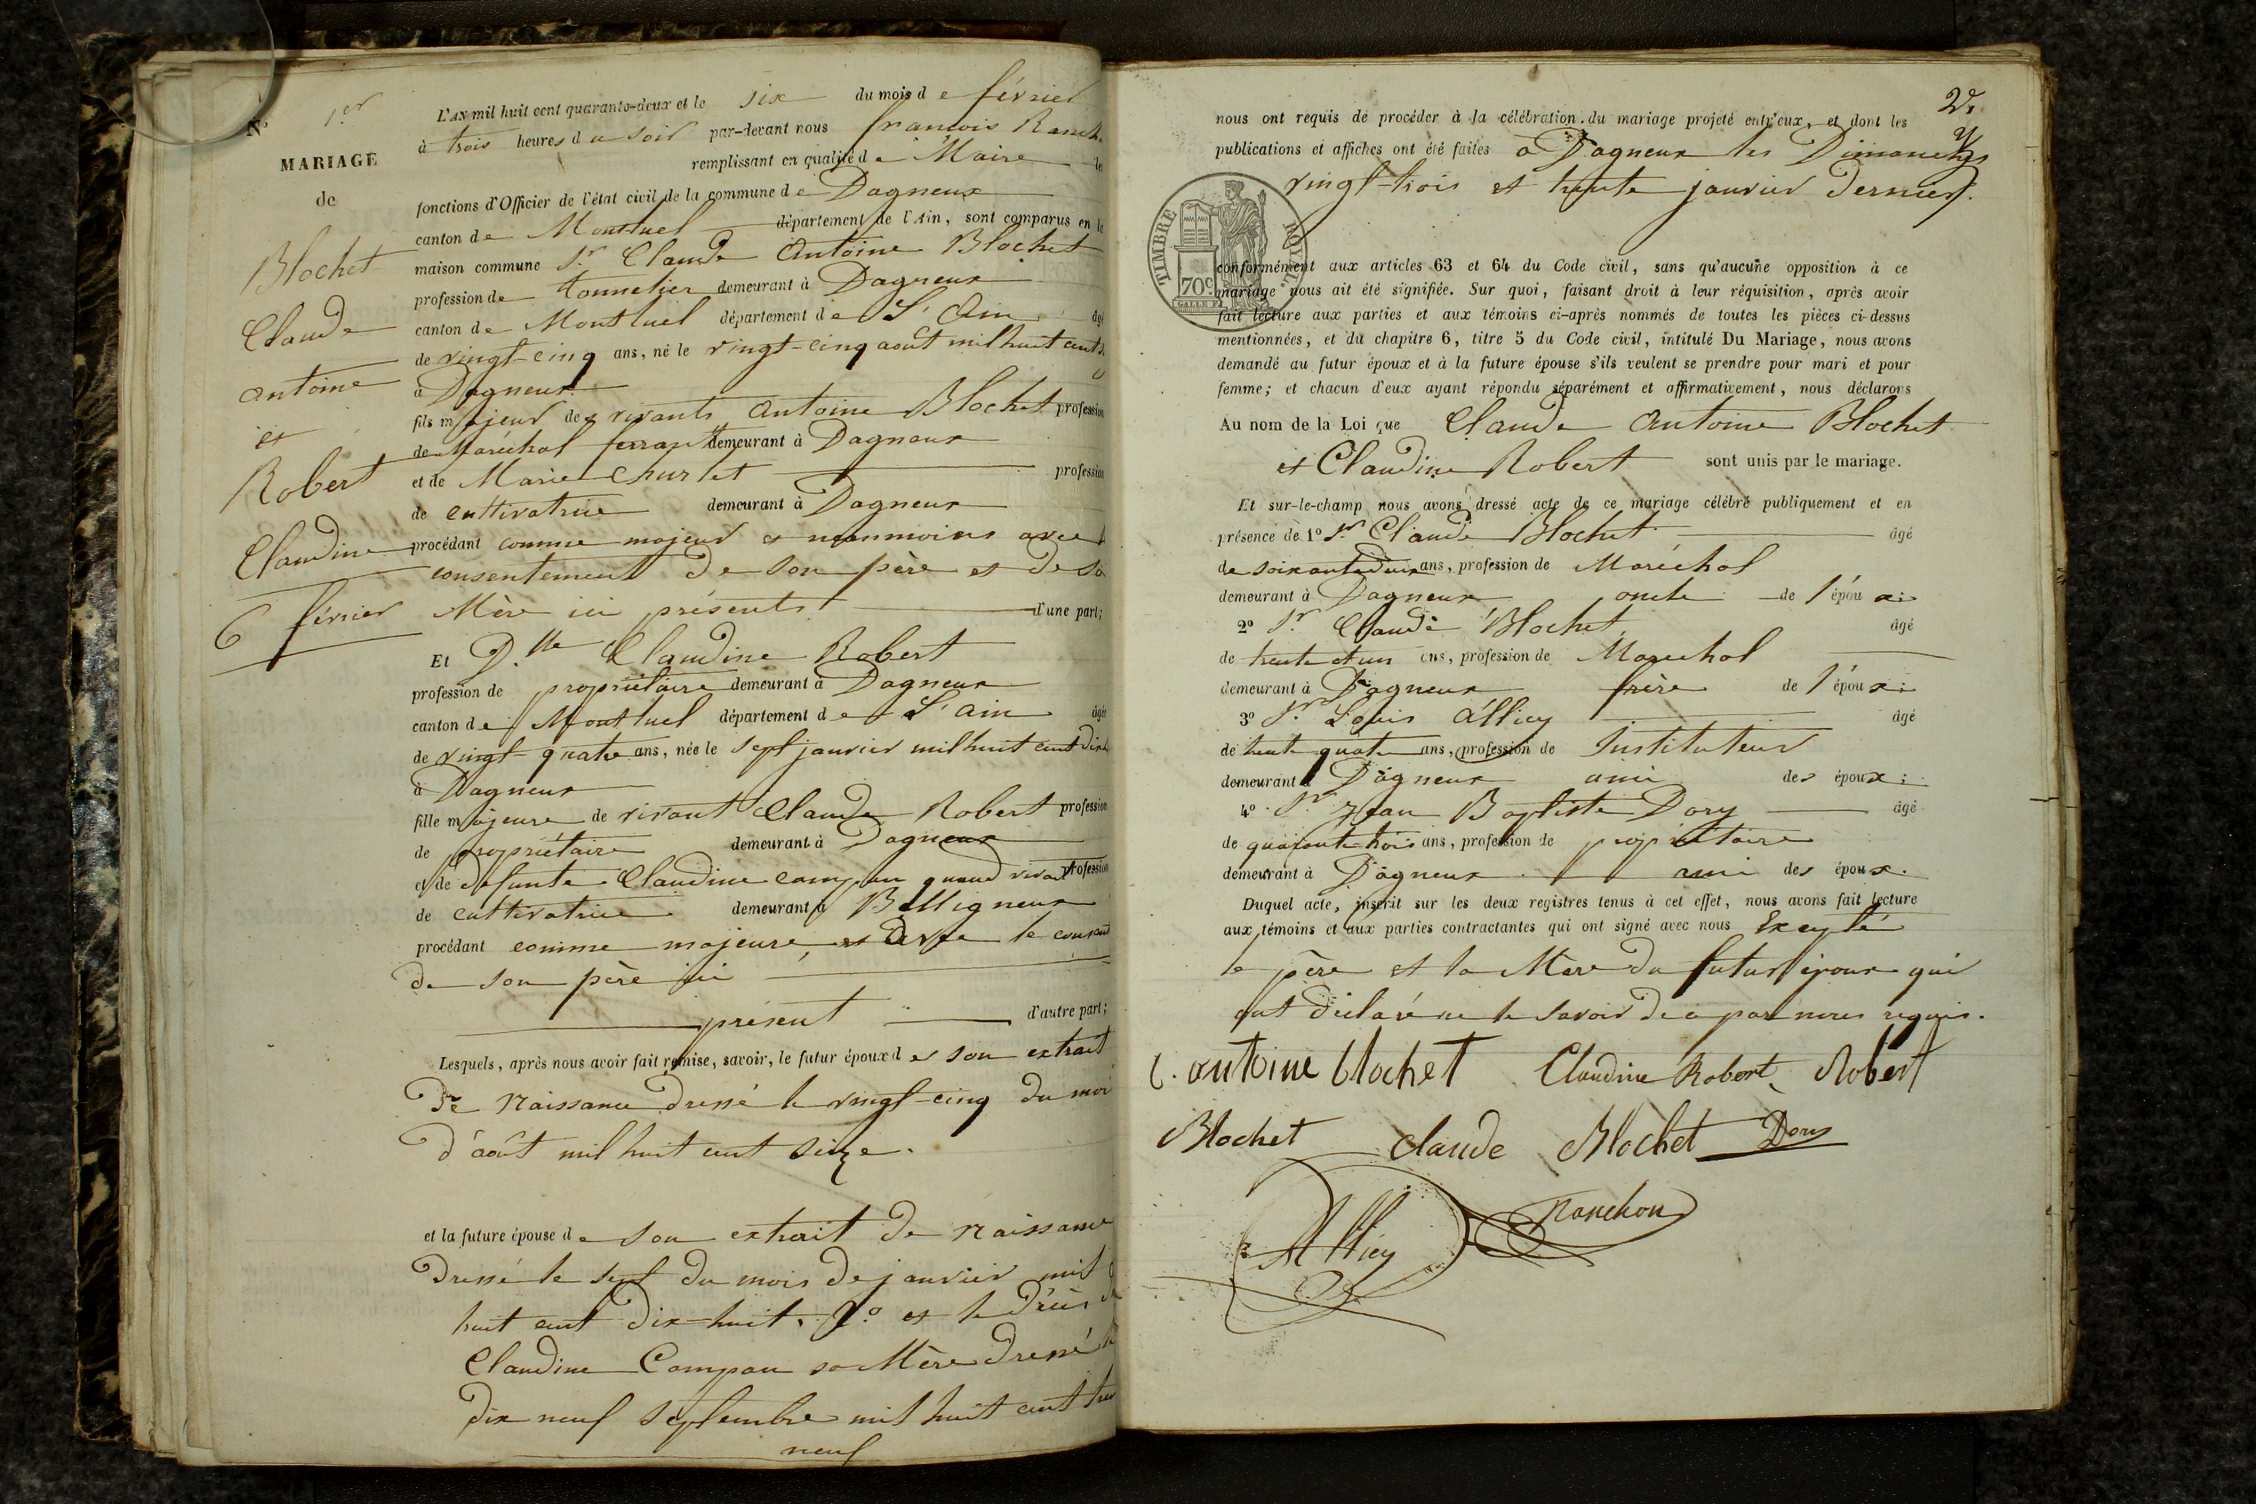 N° 1er
MARIAGE
de
Blochet
Claude
antoine
et
Robert
Claudine
6 février
L'AN mil huit cent quarante-deux et le six du mois de février
à trois heures du soir par-devant nous francois
remplissant en qualité de Maire les
fonctions d'Officier de l'état civil de la commune de Dagneux
canton de Montluel département de l'Ain, sont comparus en la
maison commune Sr Claude Antoine Blochet
profession de tonnelier demeurant à Dagneux
canton de Montluel département de L'Ain âgé
de vingt-cinq ans, né le vingt-cinq août mil huit cent
à Dagneux
fils majeur des vivants Antoine Blochet profession
de Maréchal ferrant demeurant à Dagneux
et de Marie Churlet profession
de cultivatrice demeurant à Dagneux
procédant comme majeur et néanmoins avec
consentement de son père et de sa
Mère ici présents d'une part;
Et D.lle Claudine Robert
profession de propriétaire demeurant à Dagneux
canton de Montluel département de L'ain âgée
de vingt-quatre ans, née le sept janvier mil huit cent dix
à Dagneux
fille majeure de vivant Claude Robert profession
de propriétaire demeurant à Dagneux
et de defunte Claudine Campan quand vivait profession
de cultivatrice demeurant à Belligneux
procédant comme majeure, et avec le
de son père ici
présent d'autre part;
Lesquels, après nous avoir fait remise, savoir, le futur époux de son extrait
De Naissance dressé le vingt-cinq du mois
d'août mil huit cent seize.
et la future épouse de son extrait de Naissance
dressé le sept du mois de janvier mil
huit cent dix-huit. 2° et le décès de
Claudine Campan sa Mère dressé le
dix neuf septembre mil huit cent
neuf
2.
nous ont requis de procéder à la célébration du mariage projeté entr'eux, et dont les
publications et affiches ont été faites à Dagneux les Dimanches
vingt-trois et trente janvier dernier.
TIMBRE ROYAL
70c
conformément aux articles 63 et 64 du Code civil, sans qu'aucune opposition à ce
mariage nous ait été signifiée. Sur quoi, faisant droit à leur réquisition, après avoir
fait lecture aux parties et aux témoins ci-après nommés de toutes les pièces ci-dessus
mentionnées, et du chapitre 6, titre 5 du Code civil, intitulé Du Mariage, nous avons
demandé au futur époux et à la future épouse s'ils veulent se prendre pour mari et pour
femme; et chacun d'eux ayant répondu séparément et affirmativement, nous déclarons
Au nom de la Loi que Claude Antoine Blochet
et Claudine Robert sont unis par le mariage.
Et sur-le-champ nous avons dressé acte de ce mariage célébré publiquement et en
présence de 1° Sr Claude Blochet âgé
de soixante deux ans, profession de Maréchal
demeurant à Dagneux oncle de l'époux;
2° Sr Claude Blochet âgé
de trente et un ans, profession de Maréchal
demeurant à Dagneux frère de l'époux;
3° Sr Louis Alliey âgé
de trente quatre ans, profession de Instituteur
demeurant à Dagneux ami des époux;
4° Sr Jean Baptiste Dory âgé
de quarante trois ans, profession de propriétaire
demeurant à Dagneux ami des époux.
Duquel acte, inscrit sur les deux registres tenus à cet effet, nous avons fait lecture
aux témoins et aux parties contractantes qui ont signé avec nous Excepté
le père et la Mère du futur époux qui
ont déclaré ne le savoir de ce par nous requis.
C. antoine blochet Claudine Robert Robert
Blochet Claude Blochet Dory
Alliey Ranchon